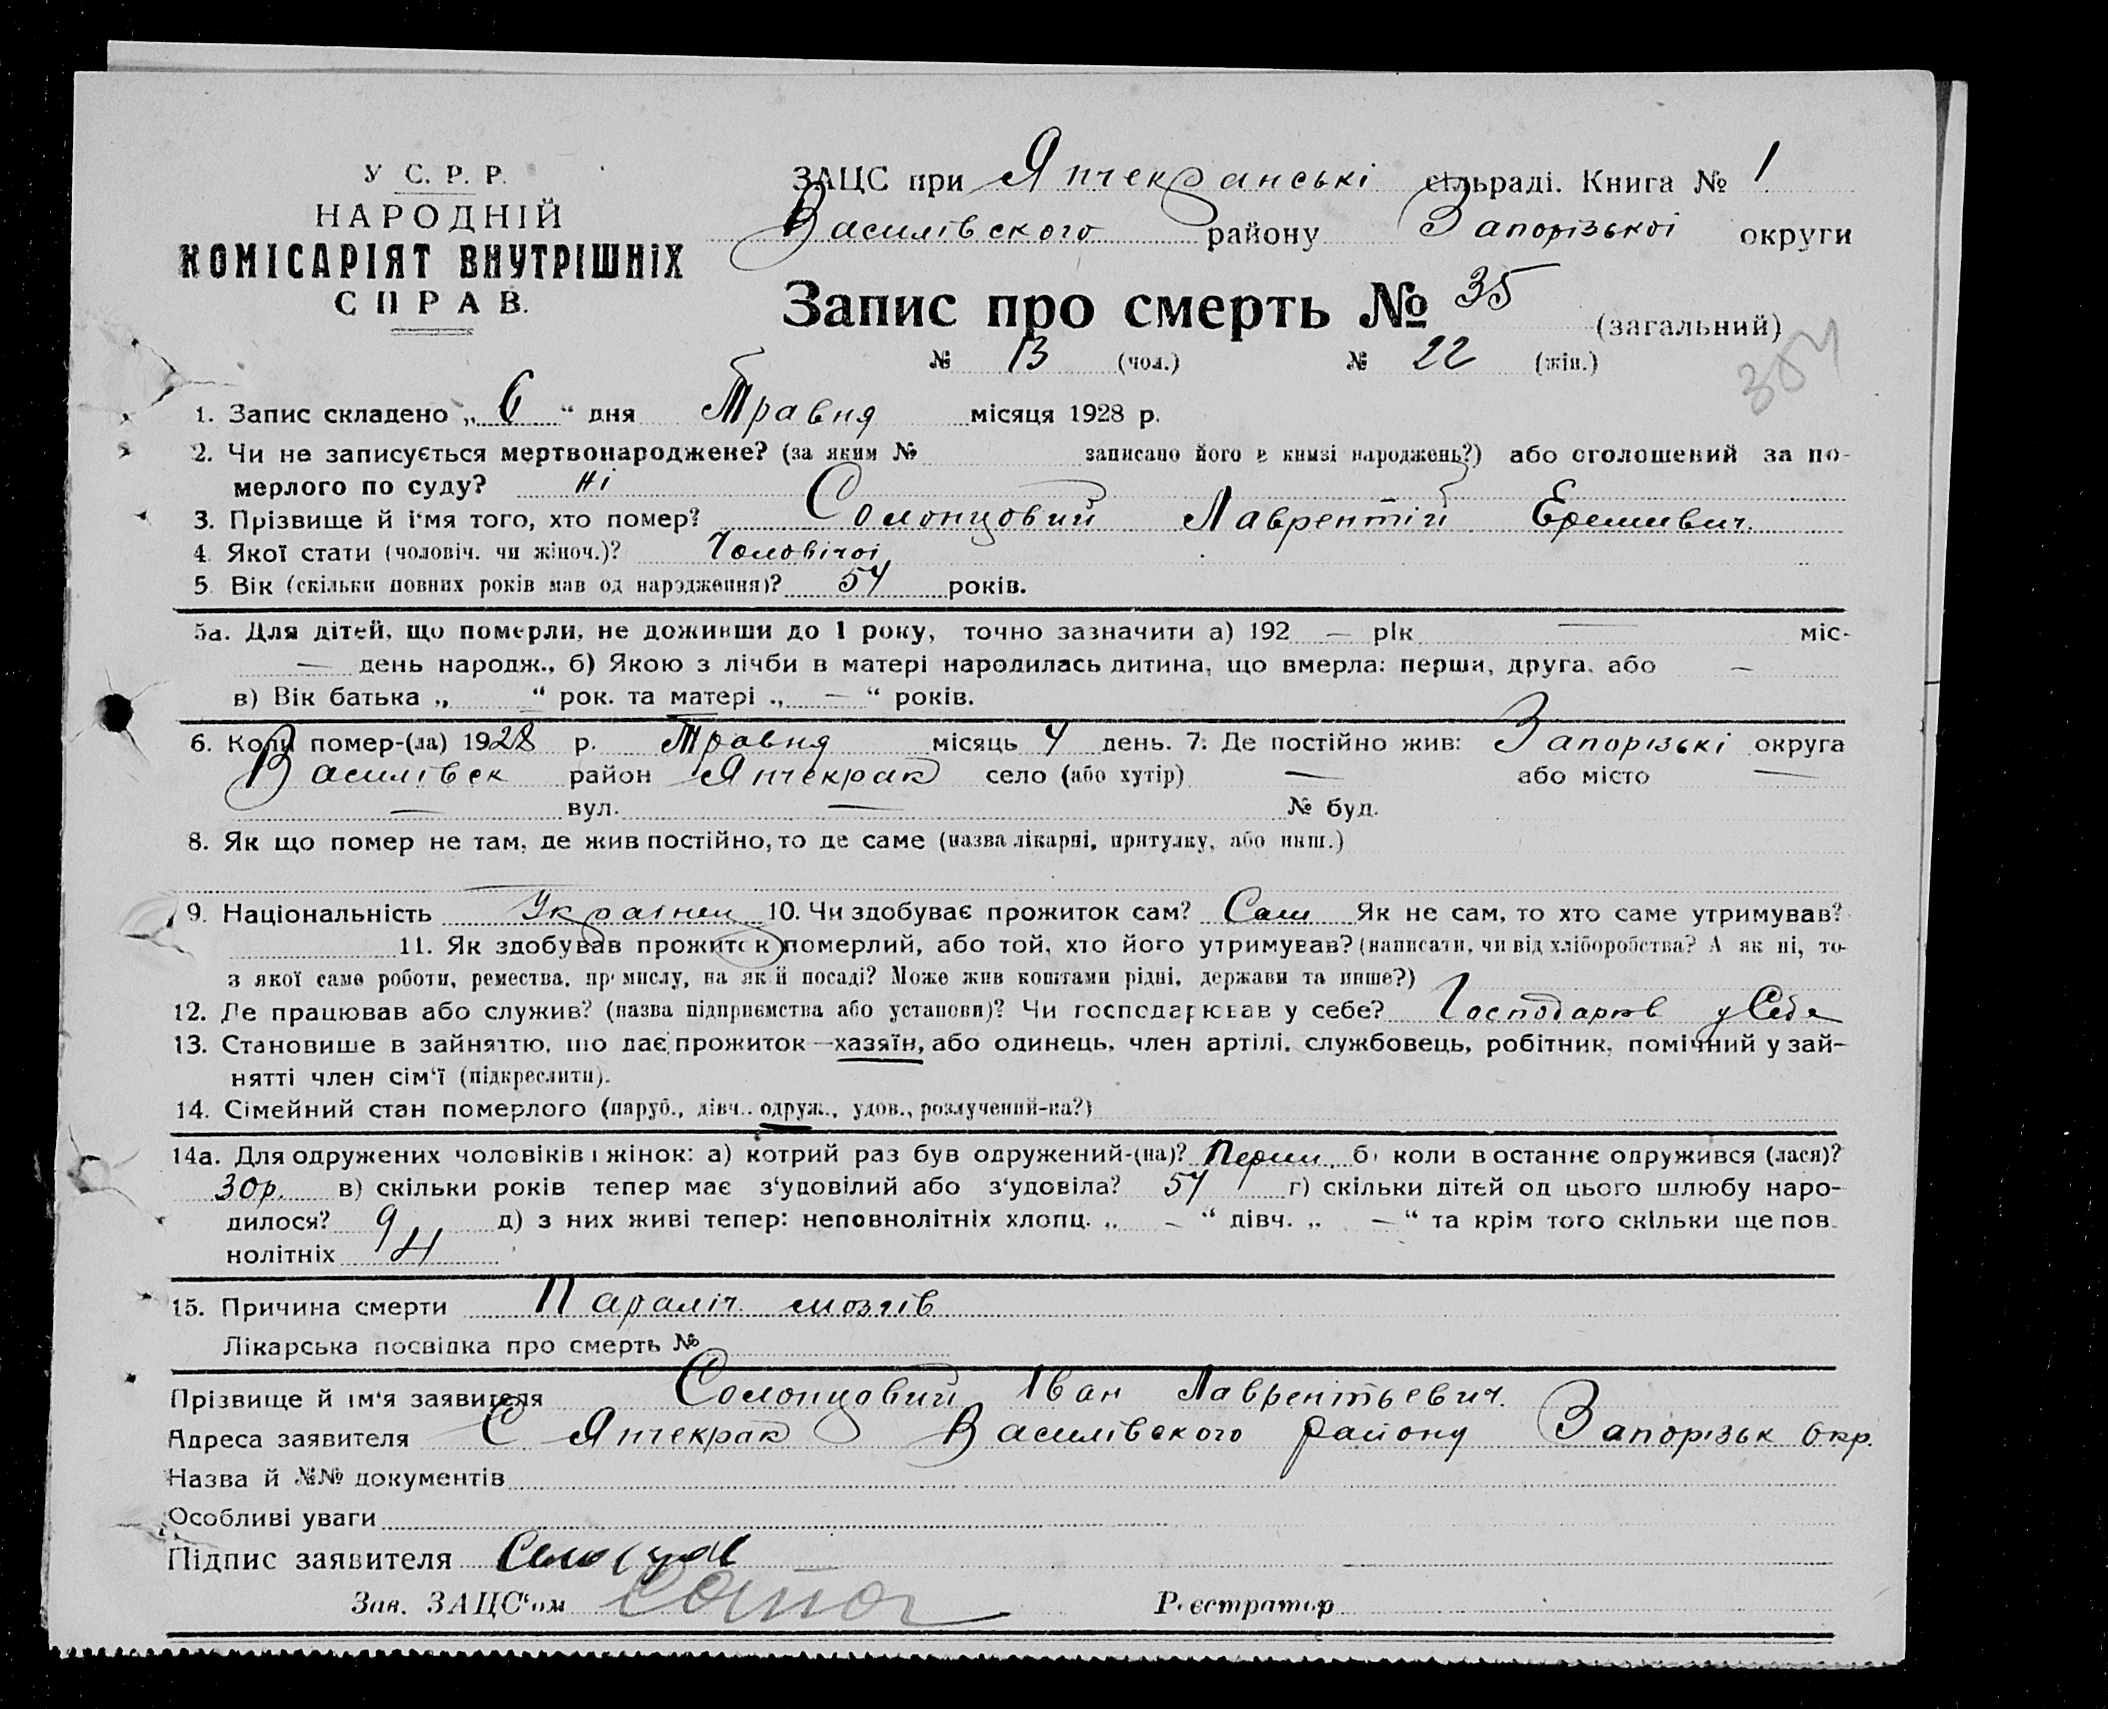 У С. Р. Р.
НАРОДНІЙ
КОМІСАРІЯТ ВНУТРІШНІХ
СПРАВ.
ЗАЦС при Янчекранські сільраді. Книга № 1
Василівского району Запорізької округи
Запис про смерть № 35 (загальний)
№ 13 (чол.) № 22 (жін.)
304
1. Запис складено „ 6 “ дня Травня місяця 1928 р.
2. Чи не записується мертвонароджене? (за яким № записано його в книзі народжень?) або оголошений за по-
мерлого по суду? ні
3. Прізвище й ім'я того, хто помер? Солонцовий Лаврентій Еремивич
4. Якої стати (чоловіч. чи жіноч.)? Чоловічої
5. Вік (скільки повних років мав од народження)? 54 років.
5а. Для дітей, що померли, не доживши до 1 року, точно зазначити а) 192 — рік — міс-
— день народж., б) Якою з лічби в матері народилась дитина, що вмерла: перша, друга, або —
в) Вік батька „ — “ рок. та матері „ — “ років.
6. Коли помер-(ла) 1928 р. Травня місяць 4 день. 7. Де постійно жив: Запорізькі округа
Василівск район Янчекрак село (або хутір) — або місто —
— вул. — № буд.
8. Як що помер не там, де жив постійно, то де саме (назва лікарні, притулку, або инш.)
9. Національність Українец 10. Чи здобуває прожиток сам? Сам Як не сам, то хто саме утримував?
11. Як здобував прожиток померлий, або той, хто його утримував? (написати, чи від хліборобства? А як ні, то
з якої саме роботи, ремества, промислу, на якій посаді? Може жив коштами рідні, держави та инше?)
12. Де працював або служив? (назва підприємства або установи)? Чи господарював у себе? Господарюв у Себе
13. Становище в зайняттю, що дає прожиток—хазяїн, або одинець, член артілі, службовець, робітник, помічний у зай-
нятті член сім'ї (підкреслити).
14. Сімейний стан померлого (паруб., дівч., одруж., удов., розлучений-на?)
14а. Для одружених чоловіків і жінок: а) котрий раз був одружений-(на)? Перш. б) коли востаннє одружився (лася)?
30 р. в) скільки років тепер має з'удовілий або з'удовіла? 54 г) скільки дітей од цього шлюбу наро-
дилося? 9 д) з них живі тепер: неповнолітніх хлопц. „ — “ дівч. „ — “ та крім того скільки ще пов.
нолітніх 4
15. Причина смерти Параліч мозгів
Лікарська посвідка про смерть №
Прізвище й ім'я заявителя Солонцовий Іван Лаврентьевич.
Адреса заявителя С Янчекрак Василівского району Запорізьк Окр.
Назва й №№ документів
Особливі уваги
Підпис заявителя
Зав. ЗАЦС'ом
Реєстратор